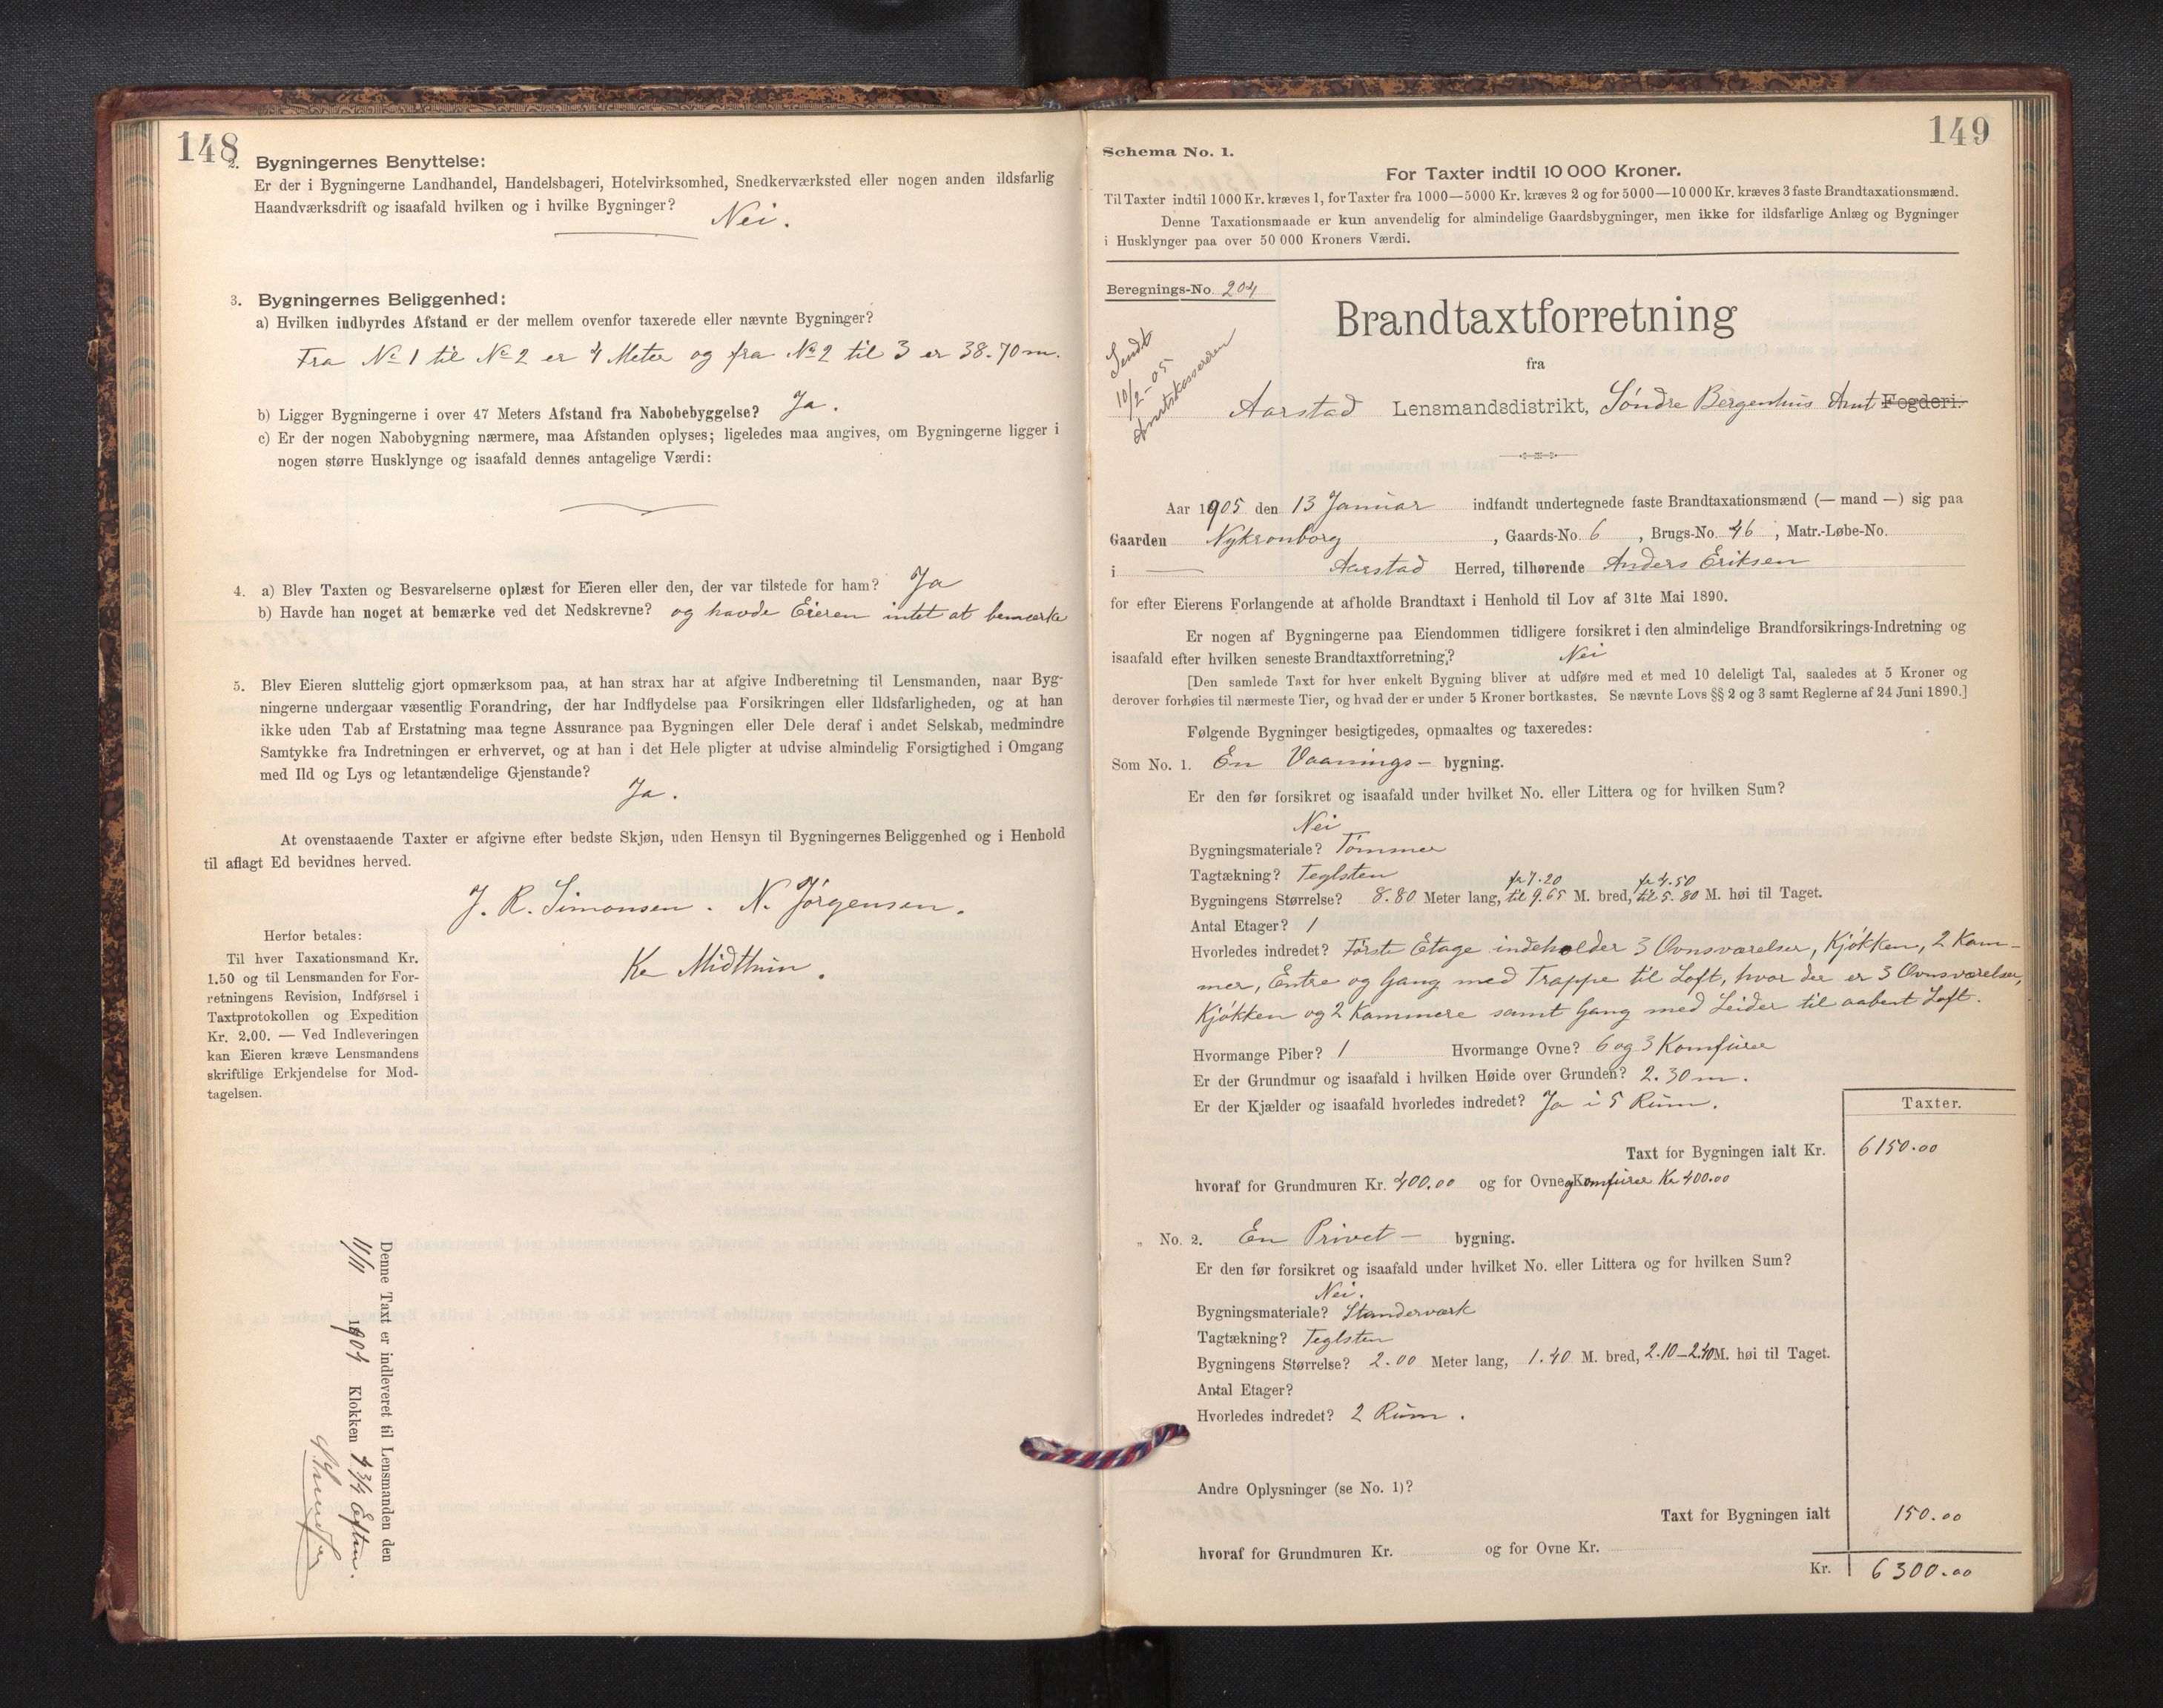 148
2. Bygningernes Benyttelse:
Er der i Bygningerne Landhandel, Handelsbageri, Hotelvirksomhed, Snedkerværksted eller nogen anden ildsfarlig
Haandværksdrift og isaafald hvilken og i hvilke Bygninger? Nei.
3. Bygningernes Beliggenhed:
a) Hvilken indbyrdes Afstand er der mellem ovenfor taxerede eller nævnte Bygninger?
Fra No 1 til No 2 er 4 Meter og fra No 2 til 3 er 38.70 m.
b) Ligger Bygningerne i over 47 Meters Afstand fra Nabobebyggelse? Ja.
c) Er der nogen Nabobygning nærmere, maa Afstanden oplyses; ligeledes maa angives, om Bygningerne ligger i
nogen større Husklynge og isaafald dennes antagelige Værdi:
4. a) Blev Taxten og Besvarelserne oplæst for Eieren eller den, der var tilstede for ham? Ja
b) Havde han noget at bemærke ved det Nedskrevne? og havde Eieren intet at bemærke
5. Blev Eieren sluttelig gjort opmærksom paa, at han strax har at afgive Indberetning til Lensmanden, naar Byg-
ningerne undergaar væsentlig Forandring, der har Indflydelse paa Forsikringen eller Ildsfarligheden, og at han
ikke uden Tab af Erstatning maa tegne Assurance paa Bygningen eller Dele deraf i andet Selskab, medmindre
Samtykke fra Indretningen er erhvervet, og at han i det Hele pligter at udvise almindelig Forsigtighed i Omgang
med Ild og Lys og letantændelige Gjenstande?
Ja.
At ovenstaaende Taxter er afgivne efter bedste Skjøn, uden Hensyn til Bygningernes Beliggenhed og i Henhold
til aflagt Ed bevidnes herved.
J. R. Simonsen. N. Jørgensen.
Ke Midttun.
Herfor betales:
Til hver Taxationsmand Kr.
1.50 og til Lensmanden for For-
retningens Revision, Indførsel i
Taxtprotokollen og Expedition
Kr. 2.00. — Ved Indleveringen
kan Eieren kræve Lensmandens
skriftlige Erkjendelse for Mod-
tagelsen.
Denne Taxt er indleveret til Lensmanden den
11/11 1904 Klokken 4 3/4 Eftm.
149
Schema No. 1.
For Taxter indtil 10 000 Kroner.
Til Taxter indtil 1000 Kr. kræves 1, for Taxter fra 1000—5000 Kr. kræves 2 og for 5000—10 000 Kr. kræves 3 faste Brandtaxationsmænd.
Denne Taxationsmaade er kun anvendelig for almindelige Gaardsbygninger, men ikke for ildsfarlige Anlæg og Bygninger
i Husklynger paa over 50 000 Kroners Værdi.
Beregnings-No. 204
Sendt
10/2-05
Amtskassereren
Brandtaxtforretning
fra
Aarstad Lensmandsdistrikt, Søndre Bergenhus Amt Fogderi.
Aar 1905 den 13 Januar indfandt undertegnede faste Brandtaxationsmænd (— mand —) sig paa
Gaarden Nykronborg, Gaards-No. 6, Brugs-No. 46, Matr.-Løbe-No.
i — Aarstad Herred, tilhørende Anders Eriksen
for efter Eierens Forlangende at afholde Brandtaxt i Henhold til Lov af 31te Mai 1890.
Er nogen af Bygningerne paa Eiendommen tidligere forsikret i den almindelige Brandforsikrings-Indretning og
isaafald efter hvilken seneste Brandtaxtforretning? Nei
[Den samlede Taxt for hver enkelt Bygning bliver at udføre med et med 10 deleligt Tal, saaledes at 5 Kroner og
derover forhøies til nærmeste Tier, og hvad der er under 5 Kroner bortkastes. Se nævnte Lovs §§ 2 og 3 samt Reglerne af 24 Juni 1890.]
Følgende Bygninger besigtigedes, opmaaltes og taxeredes:
Som No. 1. En Vaanings- bygning.
Er den før forsikret og isaafald under hvilket No. eller Littera og for hvilken Sum?
Nei
Bygningsmateriale? Tømmer
Tagtækning? Teglsten
Bygningens Størrelse? 8.80 Meter lang, fra 7.20 til 9.65 M. bred, fra 4.50 til 5.80 M. høi til Taget.
Antal Etager? 1
Hvorledes indredet? Første Etage indeholder 3 Ovnsværelser, Kjøkken, 2 Kam-
mer, Entre og Gang med Trappe til Loft, hvor der er 3 Ovnsværelser,
Kjøkken og 2 Kammere samt Gang med Leider til aabent Loft.
Hvormange Piber? 1 Hvormange Ovne? 6 og 3 Komfurer
Er der Grundmur og isaafald i hvilken Høide over Grunden? 2.30 m.
Er der Kjælder og isaafald hvorledes indredet? Ja i 5 Rum.
Taxter.
Taxt for Bygningen ialt Kr. 6150.00
hvoraf for Grundmuren Kr. 400.00 og for Ovne og Komfurer Kr 400.00
„ No. 2. En Privet- bygning.
Er den før forsikret og isaafald under hvilket No. eller Littera og for hvilken Sum?
Nei.
Bygningsmateriale? Standerværk
Tagtækning? Teglsten
Bygningens Størrelse? 2.00 Meter lang, 1.40 M. bred, 2.10-2.40 M. høi til Taget.
Antal Etager?
Hvorledes indredet? 2 Rum.
Andre Oplysninger (se No. 1)?
Taxt for Bygningen ialt 150.00
hvoraf for Grundmuren Kr. og for Ovne Kr.
Kr. 6300.00